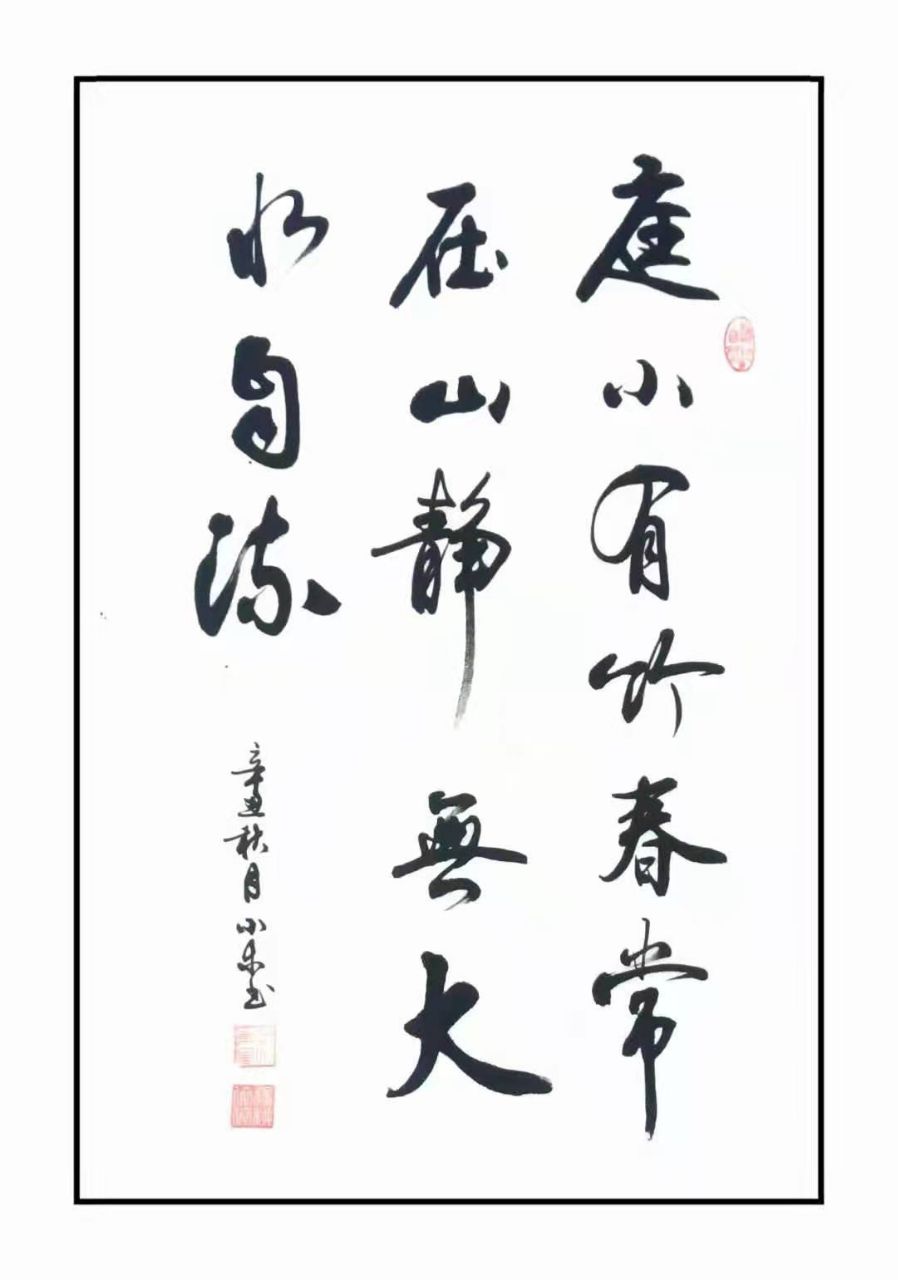 庭小有竹春常
在山静無大
水自流
辛丑秋月小书